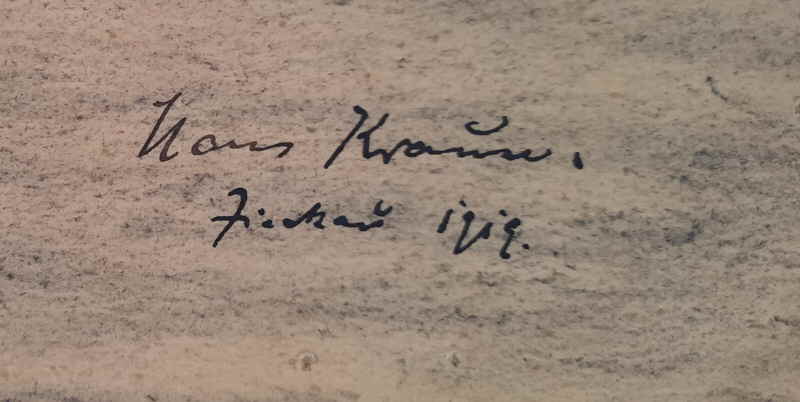 Hans Krause.
Zickau 1919.